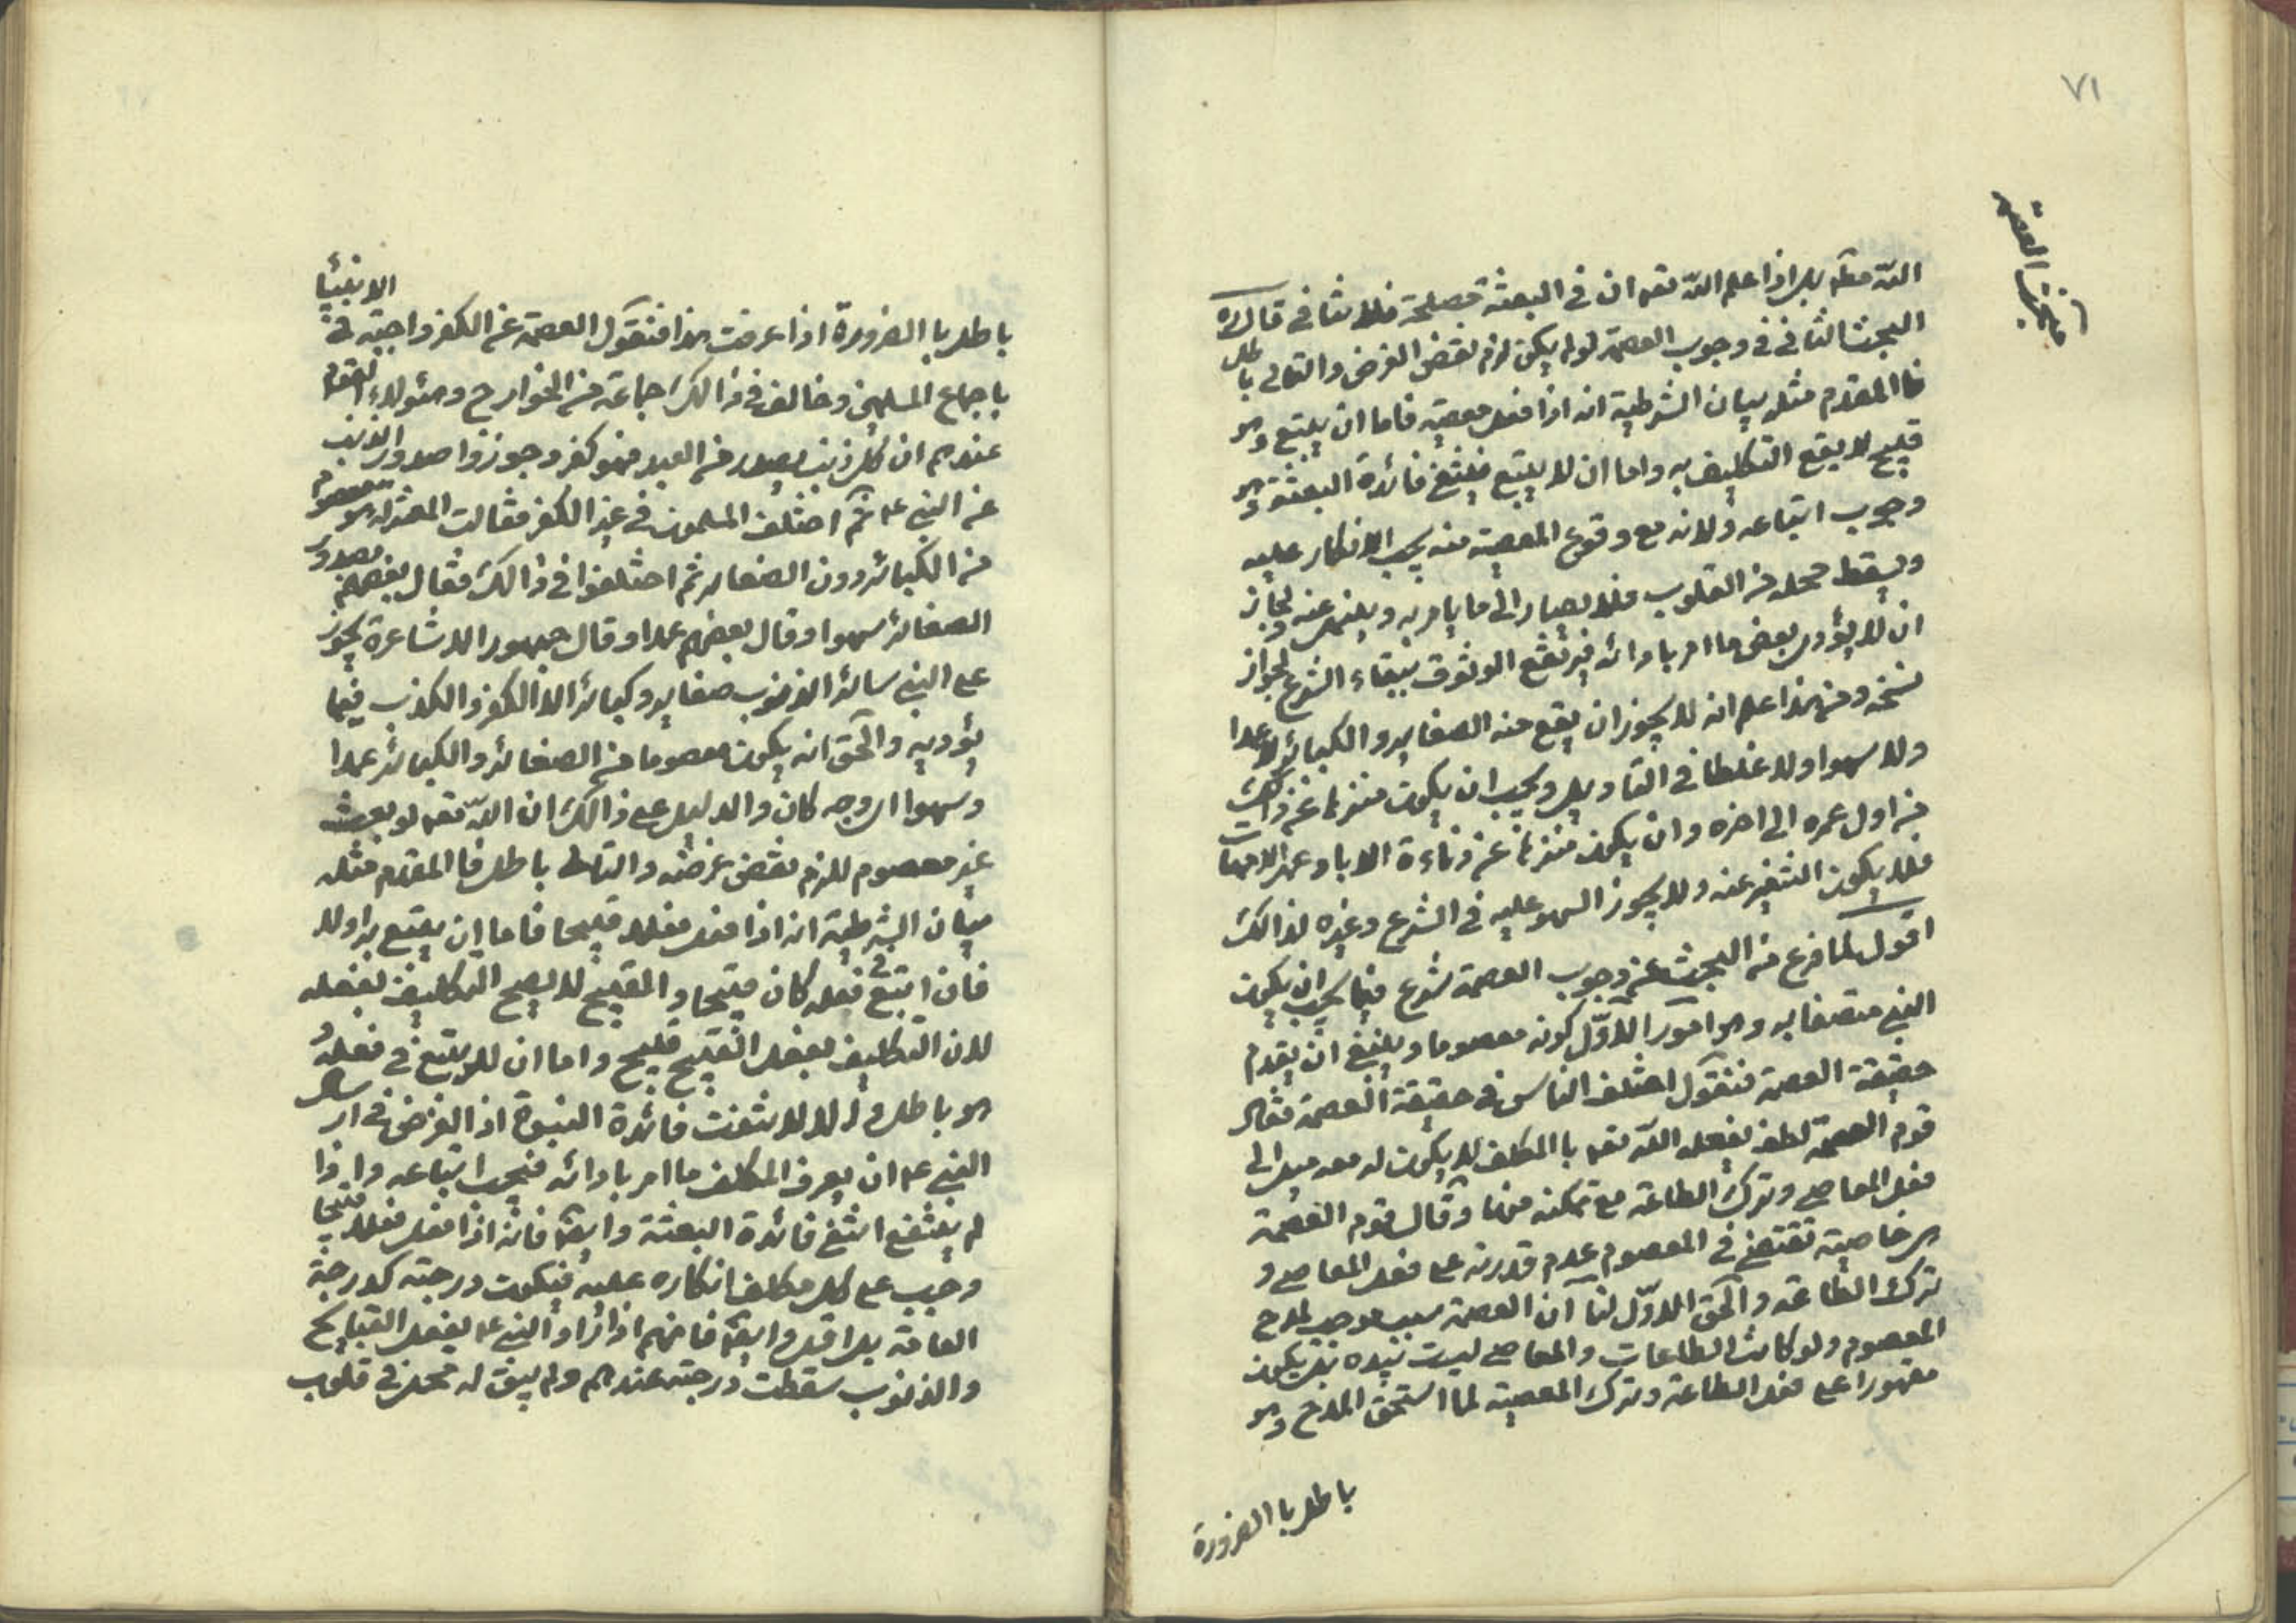 ٧١
مبحث العصمة
اللّه مطه بل اذا علم اللّه تعه ان فى البعثة مصلحة فلا تنافى قال ره
البحث الثانى فى وجوب العصمة لو لم يكن لزم نقض الغرض والتالى باطل
فا المقدم مثله بيان الشرطية انه اذا فعل معصية فاما ان يتبع وهو
قبيح لا يقع التكليف به واما ان لا يتبع فينتفى فائدة البعثة وهو
وجوب اتباعه ولانه مع وقوع المعصية منه يجب الانكار عليه
ويسقط محله من القلوب فلا يصار الى ما يامر به وينهى عنه ولجاز
ان لا يؤدى بعض ما امر بادائه فيرتفع الوثوق ببقاء الشرع لجواز
نسخه ومن هذا علم انه لا يجوز ان يقع منه الصغاير والكبائر لا عمدا
ولا سهوا ولا غلطا فى التاويل ويجب ان يكون منزها عن ذالك
من اول عمره الى اخره وان يكون منزها عن دناءة الابا وعهر الامهات
فلا يكون التنفير عنه ولا يجوز السهو عليه فى الشرع وغيره لذالك
اقول لما فرغ من البحث عن وجوب العصمة شرع فيما يجب ان يكون
النبى متصفا به وهو امور الاوّل كونه معصوما وينبغى ان يقدم
حقيقة العصمة فنقول اختلف الناس فى حقيقة العصمة فقال
قوم العصمة لطف يفعله اللّه تعه با المكلف لا يكون له معه ميل الى
فعل المعاصى وترك الطاعة مع تمكنه منها وقال قوم العصمة
هى خاصية تقتضى فى المعصوم عدم قدرته على فعل المعاصى و
ترك الطاعة والحق الاوّل لنا ان العصمة سبب موجب لمدح
المعصوم ولو كانت الطاعات والمعاصى ليست بيده بل يكون
مقهورا على فعل الطاعة وترك المعصية لما استحق المدح وهو
باطل با الضرورة
باطل با الضرورة اذا عرفت هذا فنقول العصمة عن الكفر واجبة فى الانبيا
باجماع المسلمين وخالف فى ذالك جماعة من الخوارج وهئولاء القوم
عندهم ان كل ذنب يصدر من العبد فهو كفر وجوزوا صدور الذنب
عن النبى ع م ثم اختلف المسلمون فى غير الكفر فقالت المعتزله هو معصوم
من الكبائر دون الصغاير ثم اختلفوا فى ذالك فقال بعضهم بصدور
الصغائر سهوا وقال بعضهم عمدا وقال جمهور الاشاعرة يجوز
على النبى سائر الذنوب صغاير وكبائر الا الكفر والكذب فيما
يؤديه والحق انه يكون معصوما من الصغائر والكبائر عمدا
وسهوا اى وجه كان والدليل على ذالك ان اللّه تعه لو بعث
غير معصوم للزم نقض غرضه والتالى باطل فا المقدم مثله
بيان الشرطية انه اذا فعل فعلا قبيحا فاما ان يتبع به اولا
فان اتبع فعله كان قبيحا والقبيح لا يصح التكليف بفعله
لان التكليف بفعل القبيح قبيح واما ان لا يتبع فى فعله و
هو باطل والا لانتفت فائدة النبوة اذ الغرض فى ارسال
النبى ع م ان يعرف المكلف ما امر بادائه فيجب اتباعه واذا
لم ينتفع انتفى فائدة البعثة وايضا فانه اذا فعل فعلا قبيحا
وجب على كل مكلف انكاره عليه فيكون درجته كدرجة
العامة بل اقل وايضا فانهم اذا راوا النبى ع م يفعل القبايح
والذنوب سقطت درجته عندهم ولم يبق له محل فى قلوب